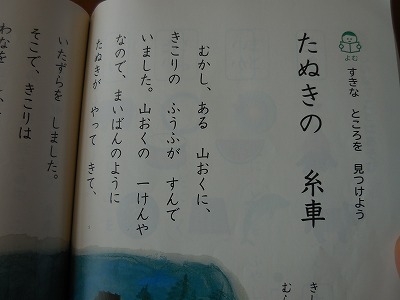 よむ
すきな ところを 見つけよう
たぬきの 糸車
むかし、ある 山おくに、
きこりの ふうふが すんで
いました。山おくの 一けんや
なので、まいばんのように
たぬきが やって きて、
いたずらを しました。
そこで、きこりは
わなを